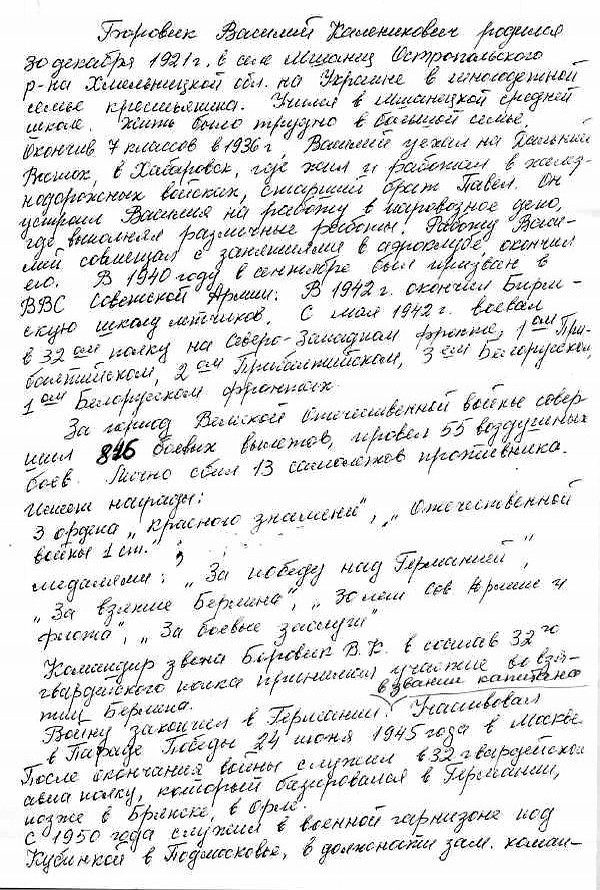 Боровик Василий Каленикович родился
30 декабря 1921 г. в селе Мшанец Остропольского
р-на Хмельницкой обл. на Украине в многодетной
семье крестьянина. Учился в Мшанецкой средней
школе. Жить было трудно в большой семье.
Окончив 7 классов в 1936 г. Василий уехал на Дальний
Восток, в Хабаровск, где жил и работал в желез-
нодорожных войсках, старший брат Павел. Он
устроил Василия на работу в паровозное депо,
где выполнял различные работы. Работу Васи-
лий совмещал с занятиями в аэроклубе, окончил
его. В 1940 году в сентябре был призван в
ВВС Советской Армии. В 1942 г. окончил Бирм-
скую школу летчиков. С мая 1942 г. воевал
в 32 ом полку на Северо-Западном фронте, 1 ом При-
балтийском, 2 ом Прибалтийском, 3 ем Белорусском,
1 ом Белорусском фронтах.
За период Великой Отечественной войны совер-
шил 816 боевых вылетов, провел 55 воздушных
боев. Лично сбил 13 самолетов противника.
Имеет награды:
3 ордена „Красного знамени", „Отечественной
войны 1 ст."
медалями: „За победу над Германией",
„За взятие Берлина", „30 лет Сов Армии и
флота", „За боевые заслуги"
Командир звена Боровик В.К. в составе 32 го
гвардейского полка принимал участие во взя-
тии Берлина.
в звании капитана
Войну закончил в Германии. Участвовал
в Параде Победы 24 июня 1945 года в Москве
После окончания войны служил в 32 гвардейском
авиаполку, который базировался в Германии,
позже в Брянске, в Орле.
С 1950 года служил в военном гарнизоне под
Кубинкой в Подмосковье, в должности зам. коман-